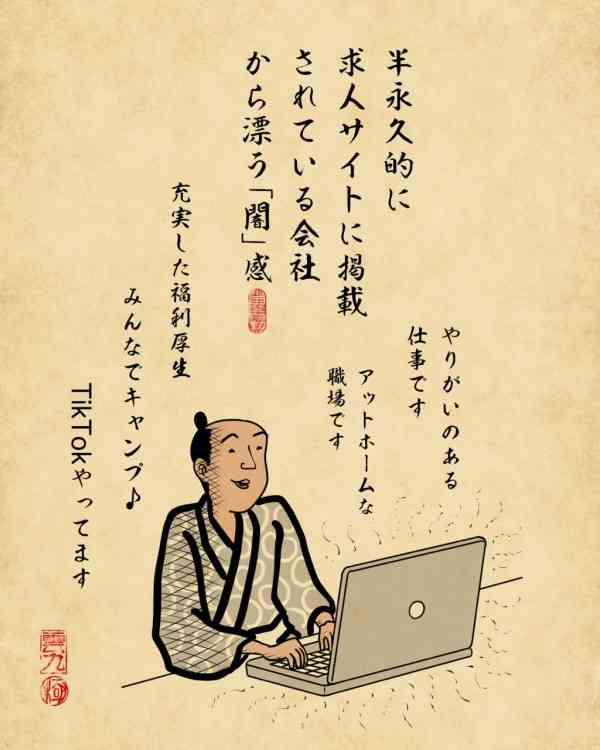 半永久的に
求人サイトに掲載
されている会社
から漂う「闇」感
やりがいのある
仕事です
アットホームな
職場です
充実した福利厚生
みんなでキャンプ♪
TikTokやってます